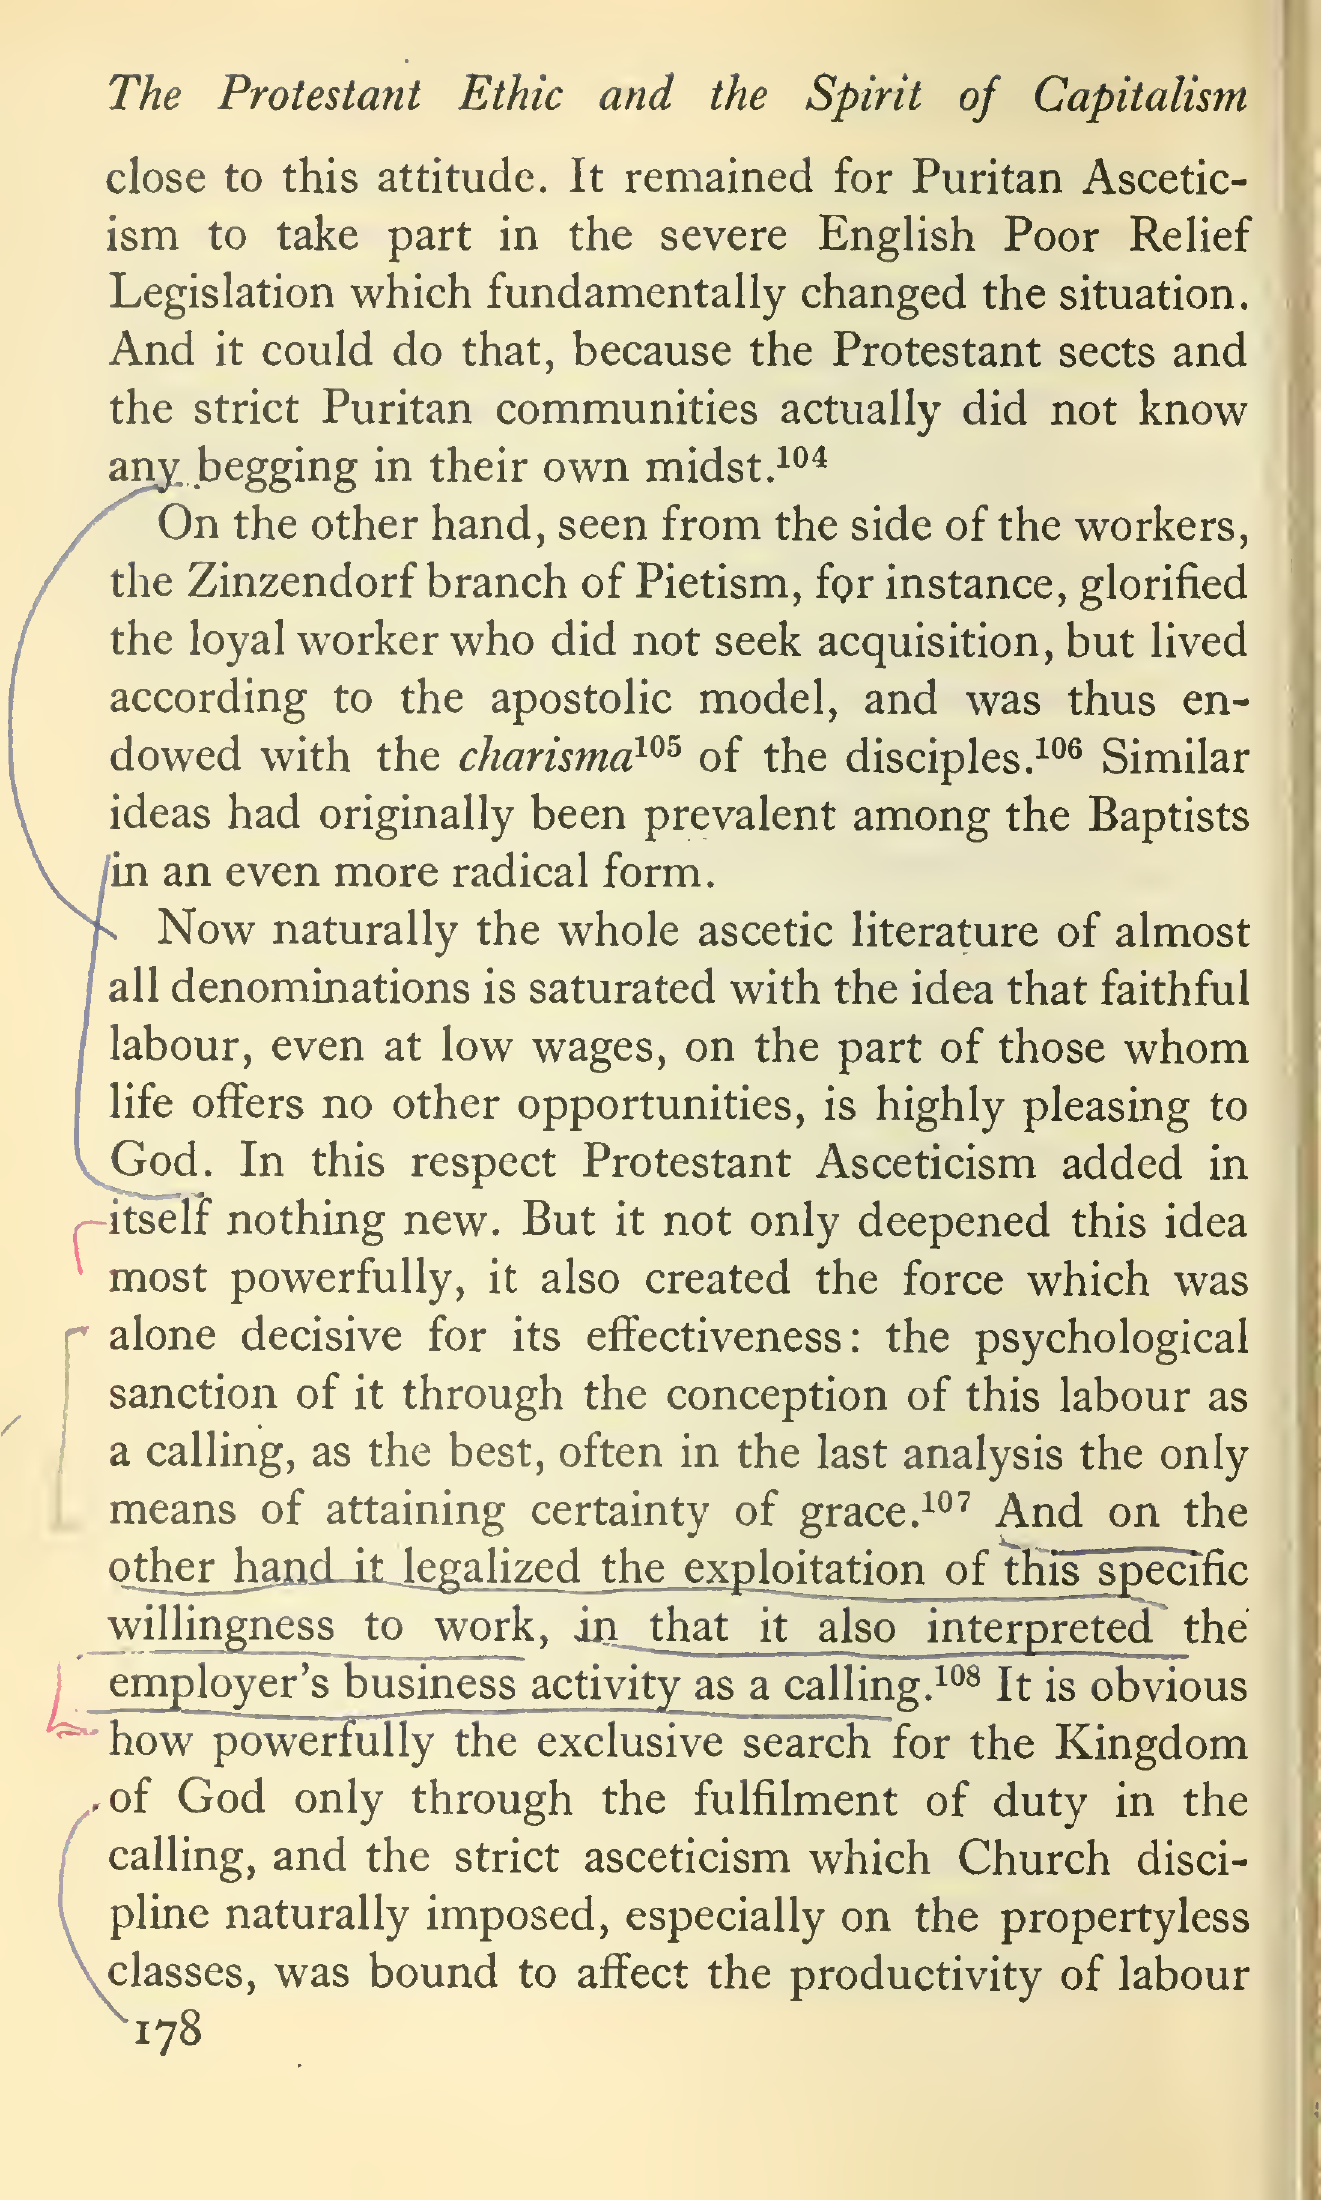 The Protestant Ethic and the Spirit of Capitalism
close to this attitude. It remained for Puritan Ascetic-
ism to take part in the severe English Poor Relief
Legislation which fundamentally changed the situation.
And it could do that, because the Protestant sects and
the strict Puritan communities actually did not know
any begging in their own midst.¹⁰⁴
On the other hand, seen from the side of the workers,
the Zinzendorf branch of Pietism, for instance, glorified
the loyal worker who did not seek acquisition, but lived
according to the apostolic model, and was thus en-
dowed with the charisma¹⁰⁵ of the disciples.¹⁰⁶ Similar
ideas had originally been prevalent among the Baptists
in an even more radical form.
Now naturally the whole ascetic literature of almost
all denominations is saturated with the idea that faithful
labour, even at low wages, on the part of those whom
life offers no other opportunities, is highly pleasing to
God. In this respect Protestant Asceticism added in
itself nothing new. But it not only deepened this idea
most powerfully, it also created the force which was
alone decisive for its effectiveness: the psychological
sanction of it through the conception of this labour as
a calling, as the best, often in the last analysis the only
means of attaining certainty of grace.¹⁰⁷ And on the
other hand it legalized the exploitation of this specific
willingness to work, in that it also interpreted the
employer's business activity as a calling.¹⁰⁸ It is obvious
how powerfully the exclusive search for the Kingdom
of God only through the fulfilment of duty in the
calling, and the strict asceticism which Church disci-
pline naturally imposed, especially on the propertyless
classes, was bound to affect the productivity of labour
178